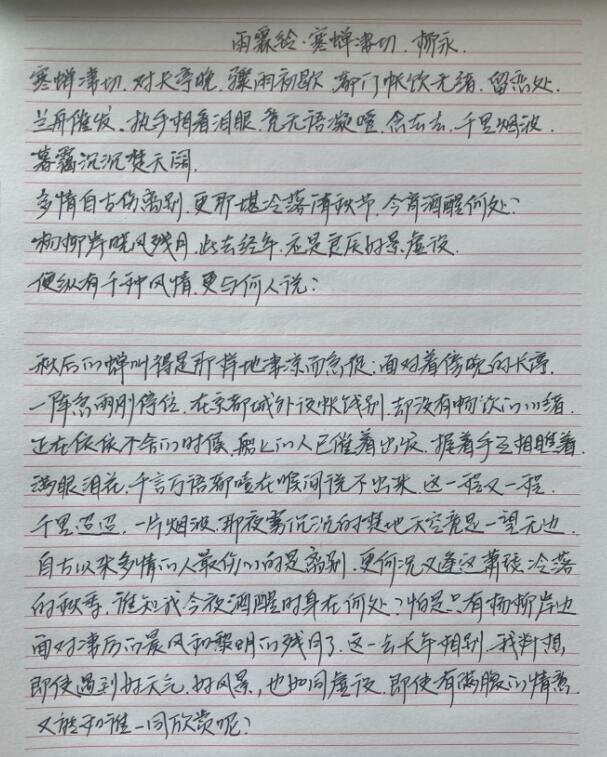 雨霖铃·寒蝉凄切.柳永.
寒蝉凄切.对长亭晚.骤雨初歇.都门帐饮无绪.留恋处.
兰舟催发.执手相看泪眼.竟无语凝噎.念去去.千里烟波.
暮霭沉沉楚天阔.
多情自古伤离别.更那堪冷落清秋节.今宵酒醒何处?
杨柳岸晓风残月.此去经年.应是良辰好景虚设.
便纵有千种风情.更与何人说?
秋后的蝉叫得是那样地凄凉而急促;面对着傍晚的长亭.
一阵急雨刚停住.在京都城外设帐饯别.却没有畅饮的心绪.
正在依依不舍的时候.船上的人已催着出发.握着手互相瞧着.
满眼泪花.千言万语都噎在喉间说不出来.这一程又一程.
千里迢迢.一片烟波.那夜雾沉沉的楚地天空竟是一望无边.
自古以来多情的人最伤心的是离别.更何况又逢这萧瑟冷落
的秋季.谁知我今夜酒醒时身在何处?怕是只有杨柳岸边
面对凄厉的晨风和黎明的残月了.这一去长年相别.我料想,
即使遇到好天气.好风景,也如同虚设.即使有满腹的情意.
又能和谁一同欣赏呢?